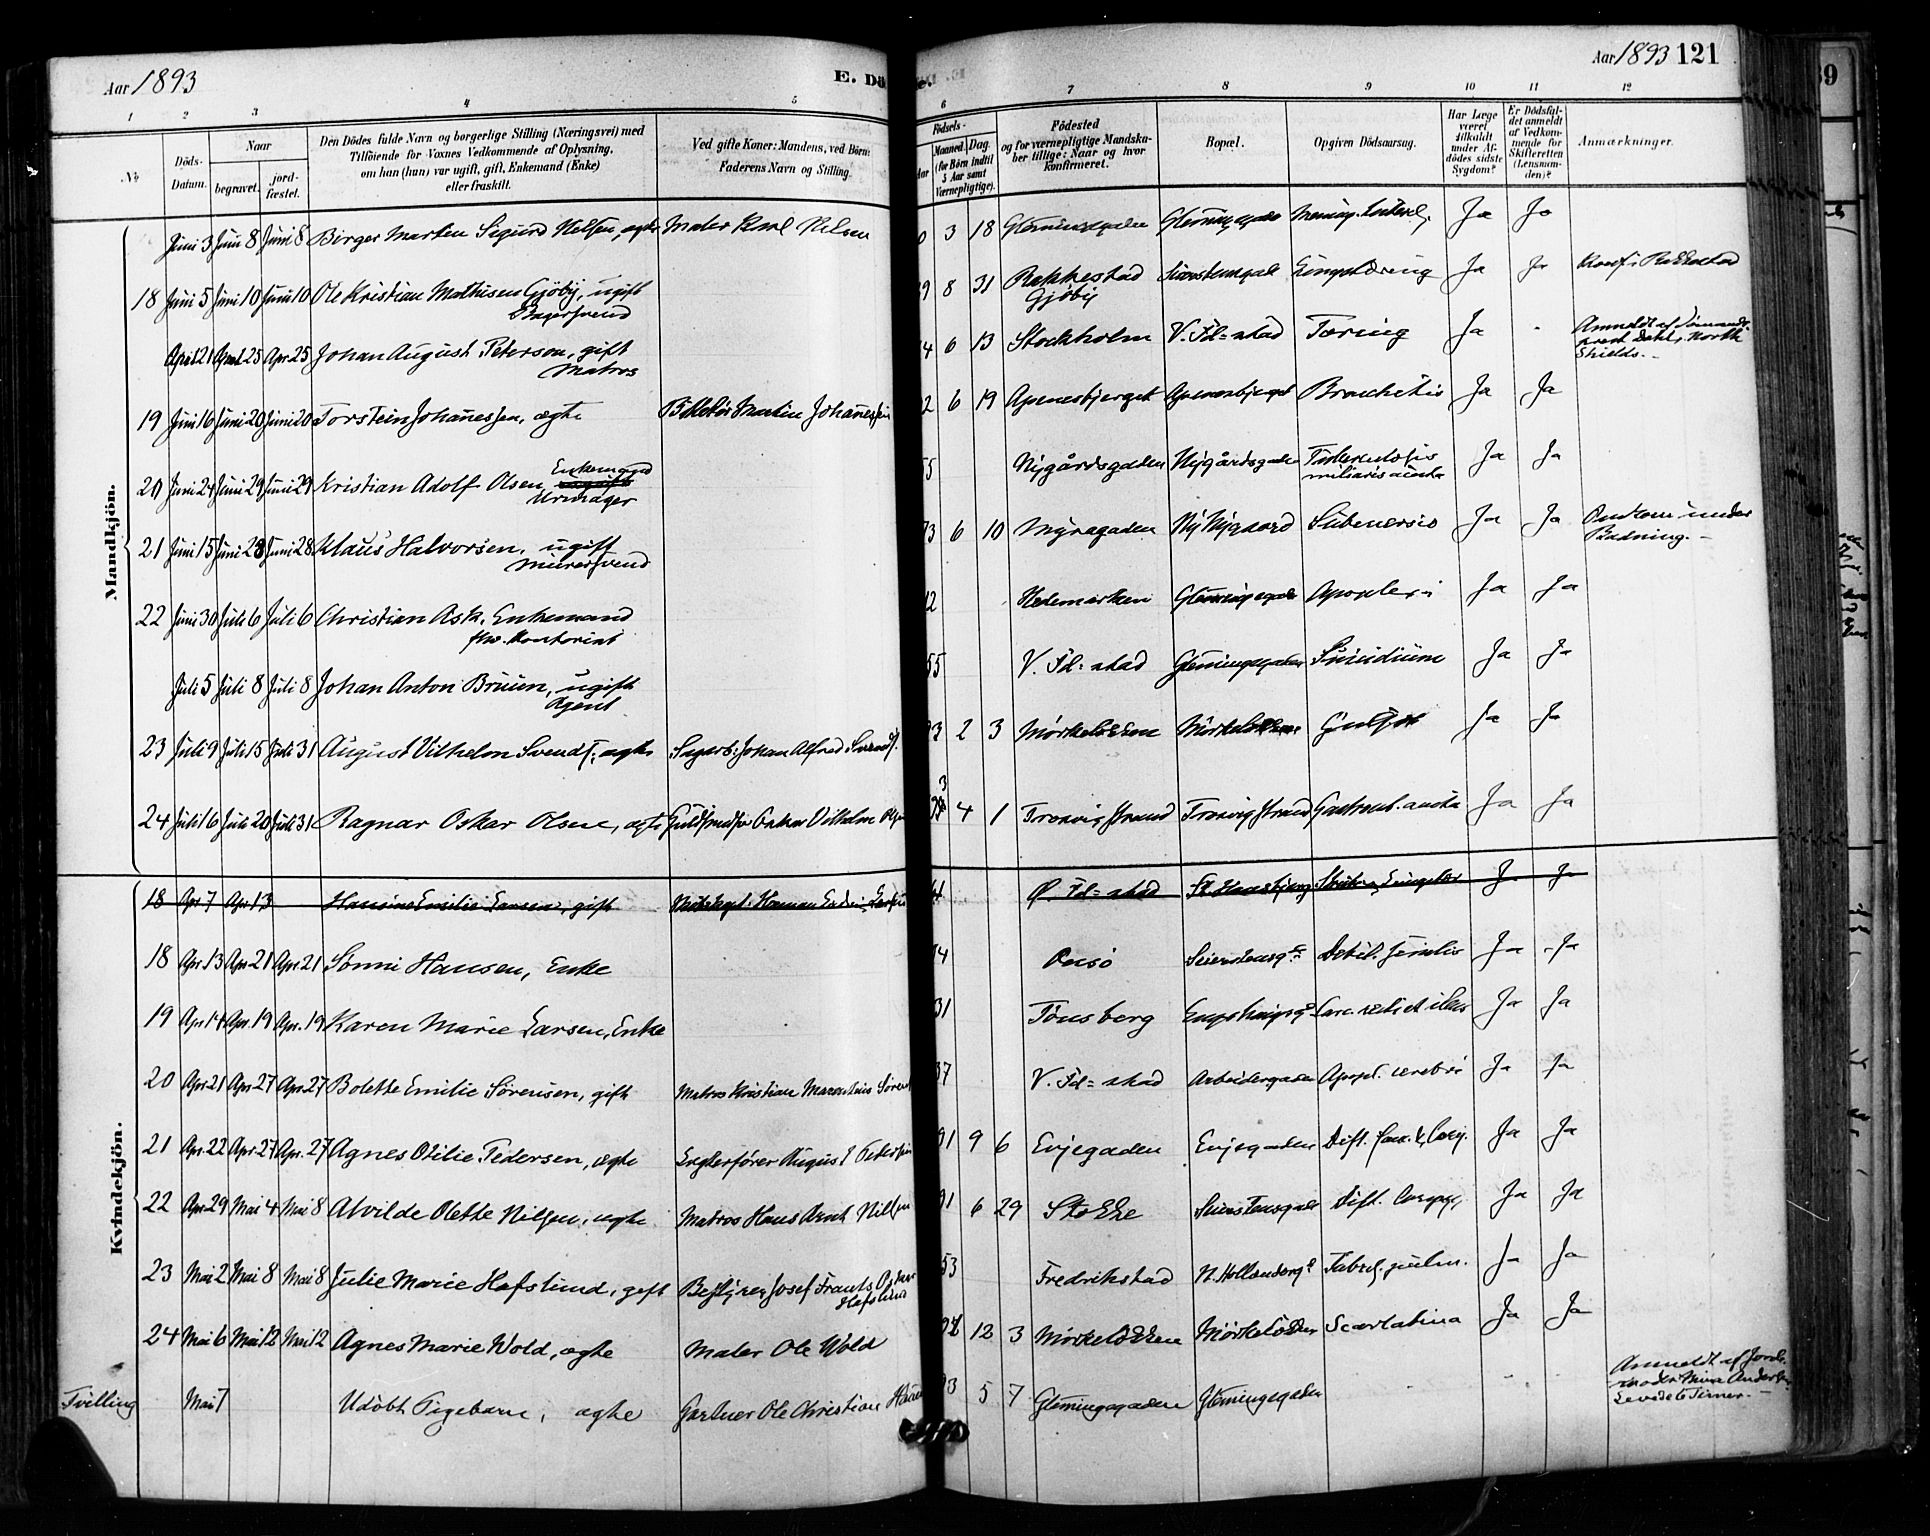 Aar 1893
E. Dö
e.
Aar 1893 121
1 2 3 4 5 6 7 8 9 10 11 12
No
Döds-Datum.
Naar
begravet.
jord-fæstet.
Den Dödes fulde Navn og borgerlige Stilling (Næringsvei) med
Tilföiende for Voxnes Vedkommende af Oplysning,
om han (hun) var ugift, gift, Enkemand (Enke)
eller fraskilt.
Ved gifte Koner: Mandens, ved Börn:
Faderens Navn og Stilling.
Födsels-
Maaned. Dag.
(for Börn indtil
5 Aar samt
Værnepligtige).
Födested
og for værnepligtige Mandska-
ber tillige: Naar og hvor
konfirmeret.
Bopæl.
Opgiven Dödsaarsag.
Har Læge
været
tilkaldt
under Af-
dödes sidste
Sygdom?
Er Dödsfal-
det anmeldt
af Vedkom-
mende for
Skifteretten
(Lensman-
den)?
Anmærkninger.
Mandkjön.
Juni 3 Juni 8 Juni 8 Birger Marten Sigurd Nelsen, ægte Maler Karl Nelsen 3 18 Glemmingegaden Glemmingegaden Ja Ja
18 Juni 5 Juni 10 Juni 10 Ole Kristian Mathisen Gjöby, ugift 8 31 Rakkestad Ja Ja Konf. i Rakkestad
Bagersvend Gjöby
April 21 April 25 Apr. 25 Johan August Peterson, gift 6 13 Stockholm V. Fd=stad Tæring Ja - Anmeldt af Sömands-
Matros prest Dahl, North
Shields.-
19 Juni 16 Juni 20 Juni 20 Torstein Johanessen, ægte Martin Johanessen 2 6 19 Apenesbjerget Apenesbjerget Bronchitis Ja Ja
20 Juni 24 Juni 29 Juni 29 Kristian Adolf Olsen, Enkemand 5 Nygårdsgaden Nygårdsgaden Tuberculosis Ja Ja
Urmager miliaris acuta
21 Juni 15 Juni 28 Juni 28 Klaus Halvorsen, ugift 3 6 10 Myragaden Ny Nygaard Submersio Ja Ja Omkom under
Murersvend Badning.-
22 Juni 30 Juli 6 Juli 6 Christian Ask, Enkemand 2 Hedemarken Glemmingegaden Apoplexi Ja Ja
fhv. Kontorist
Juli 5 Juli 8 Juli 8 Johan Anton Bruun, ugift 55 V. Fd=stad Glemmingegaden Suicidium Ja Ja
Agent
23 Juli 9 Juli 15 Juli 31 August Vilhelm Svends., ægte Sagarb. Johan Alfred Svends. 93 2 3 Mörkelökken Mörkelökken Ja Ja
24 Juli 16 Juli 20 Juli 31 Ragnar Oskar Olsen, ægte Guldsmedsv. Oskar Vilhelm Olsen 4 1 Trosvigstrand Trosvigstrand Gastroent. acuta Ja Ja
Kvindekjön.
18 Apr. 7 Apr. 13 Hansine Emilie Larsen, gift Ø. Fd=stad St. Hansbjerg Ja Ja
18 Apr. 13 Apr. 21 Apr. 21 Sönni Hansen, Enke 4 Onsö Debil. senilis Ja Ja
19 Apr. 14 Apr. 19 Apr. 19 Karen Marie Larsen, Enke 31 Tönsberg Ja Ja
20 Apr. 21 Apr. 27 Apr. 27 Bolette Emilie Sörensen, gift Matros Kristian Marentius Sörens 37 V. Fd=stad Arbeidergaden Apopl. cerebri Ja Ja
21 Apr. 22 Apr. 27 Apr. 27 Agnes Otilie Pedersen, ægte Lægterförer August Pedersen 91 9 6 Evjegaden Evjegaden Dift. fauc. & laryg. Ja Ja
22 Apr. 29 Mai 4 Mai 8 Alvilde Olette Nilsen, ægte Matros Hans Arnt Nilsen 91 6 29 Stokke Dift. laryng. Ja Ja
23 Mai 2 Mai 8 Mai 8 Julie Marie Hafslund, gift Bestyrer Josef Frants Oskar 53 Fredrikstad N. Hollenderg. Tuberc. pulm. Ja Ja
Hafslund
24 Mai 6 Mai 12 Mai 12 Agnes Marie Wold, ægte Maler Ole Wold 12 3 Mörkelökken Mörkelökken Scarlatina Ja Ja
Tvilling Mai 7 Udöbt Pigebarn, ægte Gartner Ole Christian Hansen 93 5 7 Glemmingegaden Glemmingegaden - - - Anmeldt af Jorde-
moder Mina Andersen
Levede 6 Timer.-